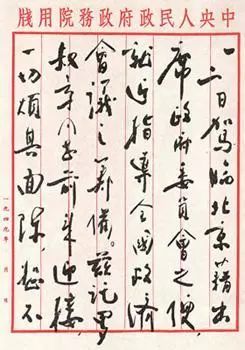 中央人民政府政務院用牋
一二日駕臨北京,藉出
席政府委員會之便,
就近指導全國救濟
會議之籌備。茲託羅
叔章同志前來迎接,
一切煩其面陳,恕不
一九四九年 月 日